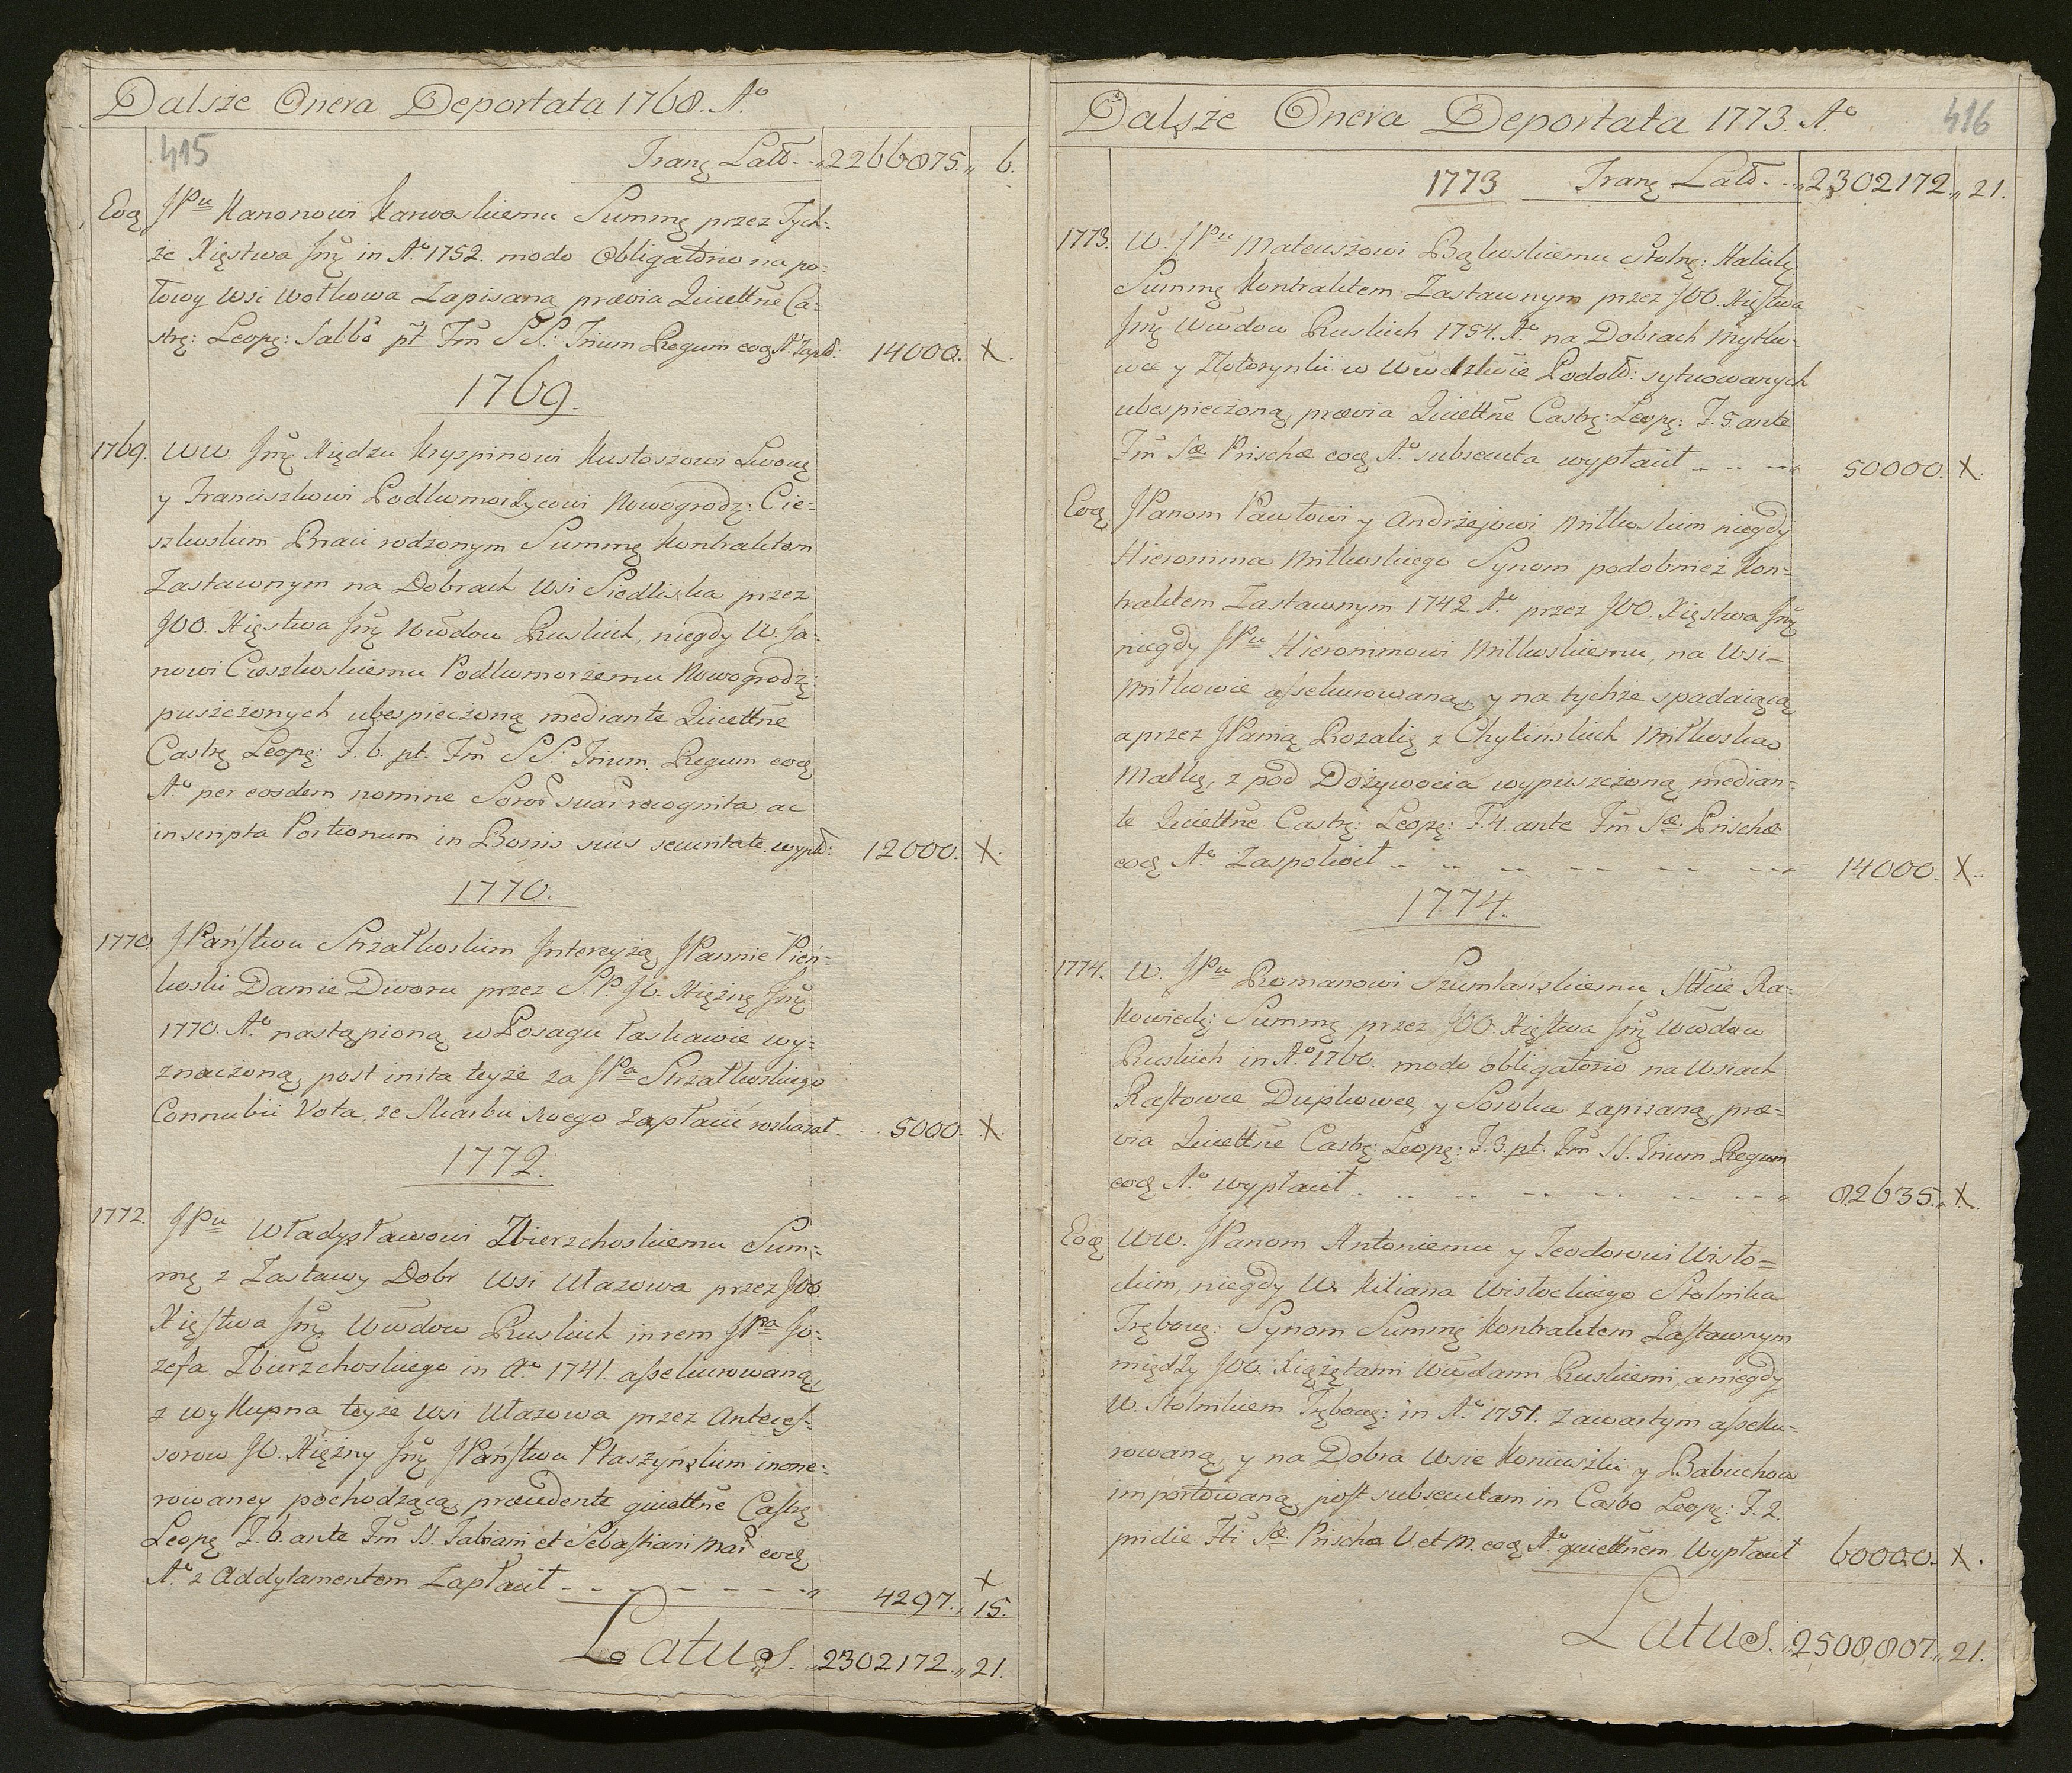 Dalsże Onera Deportata 1768. Aº
415
Tranę Latŏ - „ 2266875. „ 6.
Eoą JPu Kanonowi Karwoskiemu Summę przez Tych-
że Xięstwa Jmę in Aº 1752. modo Obligatorio na po-
łowę Wsi Wołkowa Zapisaną prævia Quiettñe Ca-
strę: Leopę: Sabbŏ pt Fm̃ SS: Trium Regum eoą Aº Zapłŏ: 14000. X.
1769.
1769. WW. Jmę Xiędzu Kryspinowi Kustoszowi Lwowę
y Franciszkowi Podkomorzycowi Nowogrodz: Cie-
szkoskim Braci rodzonym Summę Kontraktem
Zastawnym na Dobrach Wsi Siedliska przez
JOO. Xięstwa Jmę Wwdow Ruskich, niegdy W. Ja-
nowi Cieszkoskiemu Podkomorzemu Nowogrodzę
puszczonych ubespieczoną mediante Quiettñe
Castrę Leopę: F. 6. pt. Fm̃ SS: Trium Regum eoą
Aº per eosdem nomine Soror̃ suar̃ recognita ac
inscripta Portionum in Bonis suis securitate wypłŏ: 12000. X.
1770.
1770. JPańſtwu Strzałkoskim Jntercyżą JPannie Pień-
koski Damie Dworu przez S.P. JO. Xiężnę Jmę
1770. Aº nastąpioną w Posagu łaskawie wy-
znaczoną, post inita teyże za JPa Strzałkoskiego
Connubii Vota, ze Skarbu swego zapłacić roskazał - . . 5000. X.
1772.
1772. JPu Władysławowi Zbierzchoskiemu Sum-
mę z Zastawy Dobr Wsi Ułazowa przez JOO.
Xięſtwa Jmę Wwdow Ruskich in rem JPna Jo-
zefa Zbierzchoskiego in Aº 1741. aſsekurowaną,
z wykupna teyże Wsi Ułazowa przez Anteceſ-
sorow JO. Xiężny Jmę JPańſtwu Ptaszyńskim inone-
rowaney pochodzącą, præcedente quiettñe Caſtrę
Leopę F. 6. ante Fm̃ SS. Fabiani et Sebaſtiani Mar̃ eoą
Aº z Addytamentem Zapłacił - - - - - - - „ 4297. „ X 15.
Latus. „ 2302172. „ 21.
Dalsże Onera Deportata 1773. Aº
416
1773 Tranę Latŏ - . „ 2302172. „ 21.
1773. W. JPu Mateuszowi Bąkoskiemu Stolnę: Halickę
Summę Kontraktem Zastawnym przez JOO. Xięſtwa
Jmę Wwdow Ruskich 1754. Aº na Dobrach Mytko-
wce y Złotorynki w Wwdztwie Podolŏ: sytuowanych
ubespieczoną, prævia Quiettñe Castrę: Leopę: F. 5. ante
Fm̃ Sæ Priscæ eoą Aº subsecuta wypłacił - - - - „ 50000. X.
Eoą JPanom Pawłowi y Andrzejowi Miłkoskim niegdy
Hieronima Miłkoskiego Synom podobnież Kon-
traktem Zastawnym 1742. Aº przez JOO. Xięstwa Jmę
niegdy JPu Hieronimowi Miłkoskiemu, na Wsi-
Miłkowie aſsekurowaną, y na tychże spadaiącą,
a przez JPanią Rozalię z Chylińskich Miłkoską
Matkę, z pod Dożywocia wypuszczoną, median-
te Quiettñe Castrę: Leopę: F. 4. ante Fm̃ Sæ Priscæ
eoą Aº Zaspokoił - - - - - - - 14000. X.
1774.
1774. W. JPu Romanowi Szumlańskiemu Sttcie Ra-
kowieckę: Summę przez JOO. Xięſtwa Jmę Wwdow
Ruskich in Aº 1760. modo obligatorio na Wsiach
Raſtowce Dupkowce, y Soroka zapisaną, præ-
via Quiettñe Castrę: Leopę: F. 3. pt. Fm̃ SS. Trium Regum
eoą Aº wypłacił - - - - - - - „ 82635. „ X.
Eoą WW. JPanom Antoniemu y Teodorowi Wisło-
ckim, niegdy W. Kiliana Wisłockiego Stolnika
Tręboŵę: Synom Summę Kontraktem Zaſtawnym
między JOO. Xiążętami Wwdami Ruskiemi, a niegdy
W. Stolnikiem Tręboŵę: in Aº 1751. zawartym aſseku-
rowaną, y na Dobra Wsie Koniuszki y Babuchow
importowaną, poſt subsecutam in Casŏ Leopę: F. 2.
pridie Fti Sæ Priscæ V. et M. eoą Aº quiettñem Wypłacił 60000. X.
Latus. „ 2508,807. „ 21.